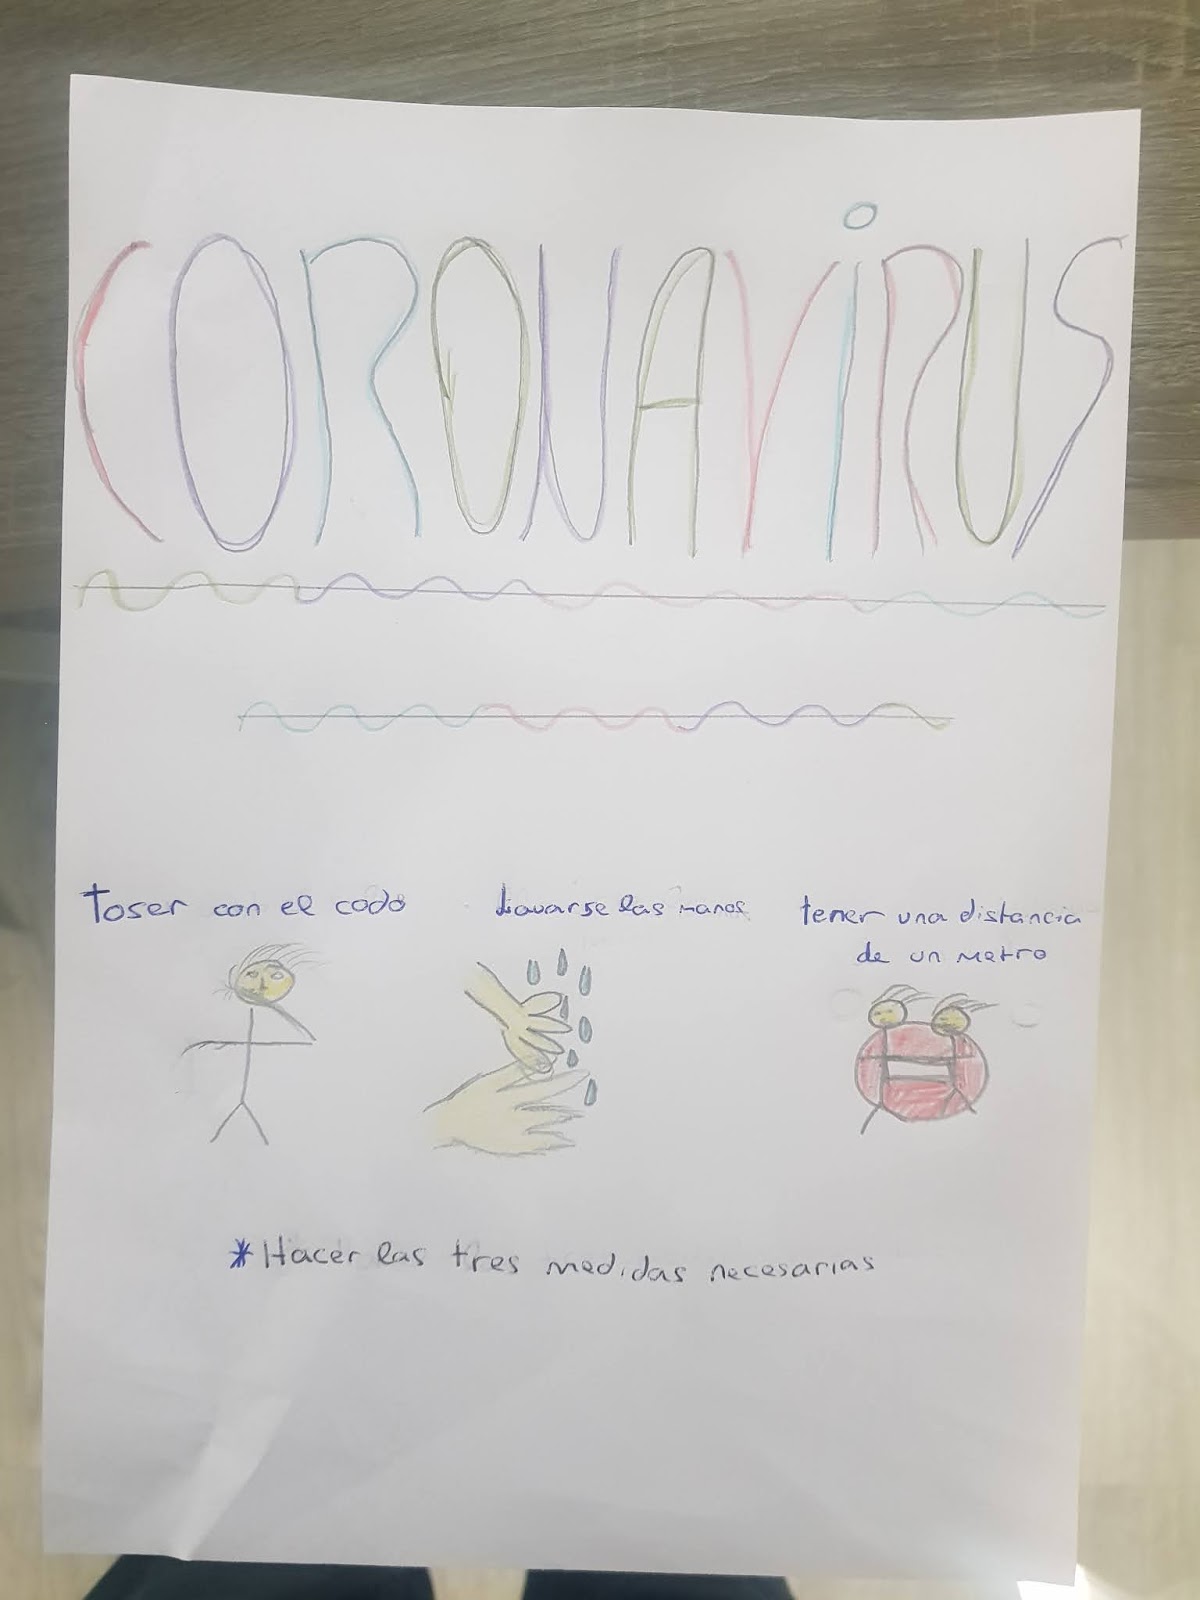 CORONAViRUS
Toser con el codo
Lavarse las manos
tener una distancia
de un metro
*Hacer las tres medidas necesarias